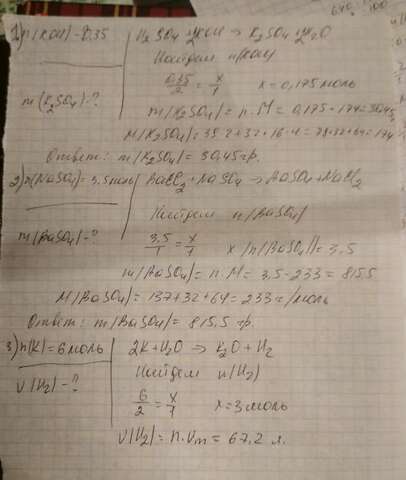 1) n(KOH) = 0.35
H2SO4 + 2KOH => K2SO4 + 2H2O
Найдем n(KOH)
0,35/2 = x/1 x = 0,175 моль
m(K2SO4) - ?
m(K2SO4) = n·M = 0,175·174 = 30,45
M(K2SO4) = 39·2+32+16·4 = 78+32+64 = 174
Ответ: m(K2SO4) = 30,45 гр.
2) n(NaSO4) = 3.5 моль
BaCl2 + NaSO4 => BaSO4 + NaCl2
Найдем n(BaSO4)
m(BaSO4) - ?
3,5/1 = x/1 x(n(BaSO4)) = 3,5
m(BaSO4) = n·M = 3,5·233 = 815.5
M(BaSO4) = 137+32+64 = 233 г/моль
Ответ: m(BaSO4) = 815,5 гр.
3) n(K) = 6 моль
2K + H2O => K2O + H2
Найдем n(H2)
V(H2) - ?
6/2 = x/1 x = 3 моль
V(H2) = n·Vm = 67,2 л.